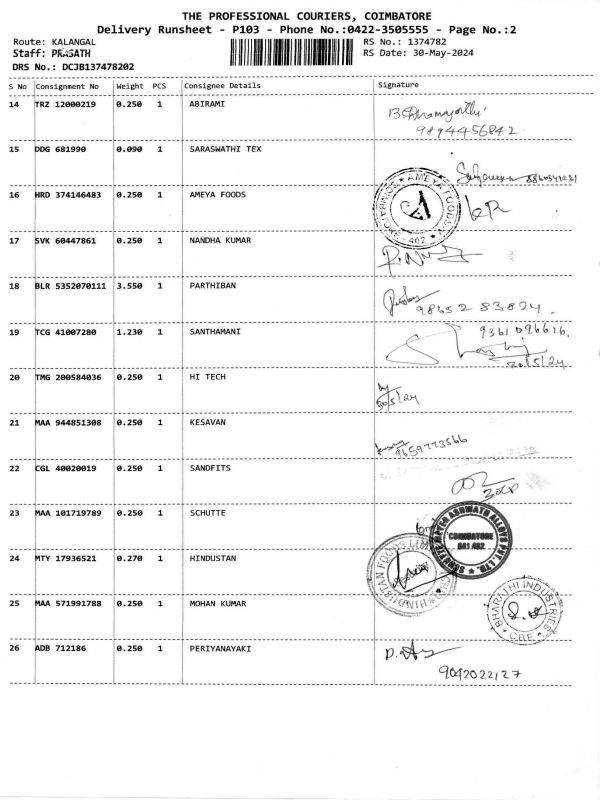 THE PROFESSIONAL COURIERS, COIMBATORE
Delivery Runsheet - P103 - Phone No.:0422-3505555 - Page No.:2
Route: KALANGAL
Staff: PRASATH
DRS No.: DCJB137478202
RS No.: 1374782
RS Date: 30-May-2024
S No Consignment No Weight PCS Consignee Details Signature
14 TRZ 12000219 0.250 1 ABIRAMI
9894456842
15 DDG 681990 0.090 1 SARASWATHI TEX
16 HRD 374146483 0.250 1 AMEYA FOODS
AMEYA FOODS
COIMBATORE - 402
17 SVK 60447861 0.250 1 NANDHA KUMAR
18 BLR 5352070111 3.550 1 PARTHIBAN
98652 83824
19 TCG 41007280 1.230 1 SANTHAMANI
9361096616
30/5/24
20 TMG 200584036 0.250 1 HI TECH
30/5/24
21 MAA 944851308 0.250 1 KESAVAN
9659773566
22 CGL 40020019 0.250 1 SANDFITS
23 MAA 101719789 0.250 1 SCHUTTE
ASHWATH ALLOYS PVT. LTD.
COIMBATORE
641 402
24 MTY 17936521 0.270 1 HINDUSTAN
HINDUSTAN FOODS LIMITED
25 MAA 571991788 0.250 1 MOHAN KUMAR
BHARATHI INDUSTRIES
CBE
26 ADB 712186 0.250 1 PERIYANAYAKI
9042022127